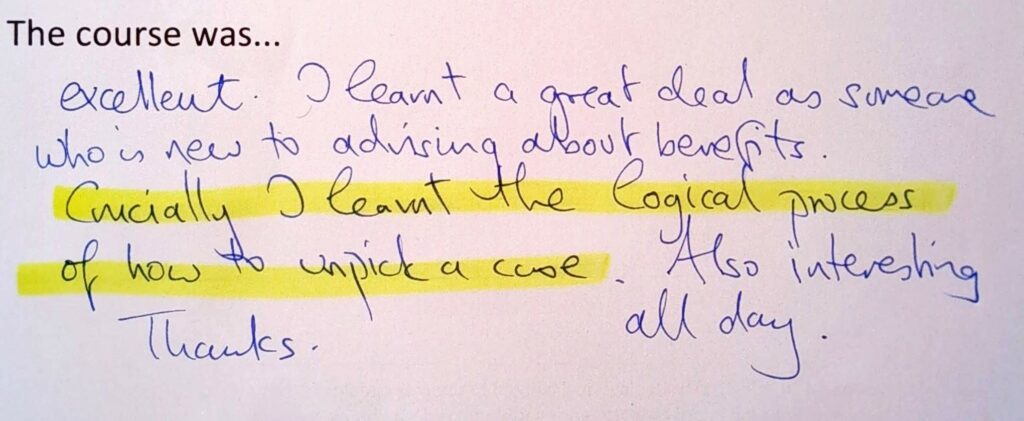 The course was...
excellent. I learnt a great deal as someone
who is new to advising about benefits.
Crucially I learnt the logical process
of how to unpick a case. Also interesting
all day.
Thanks.